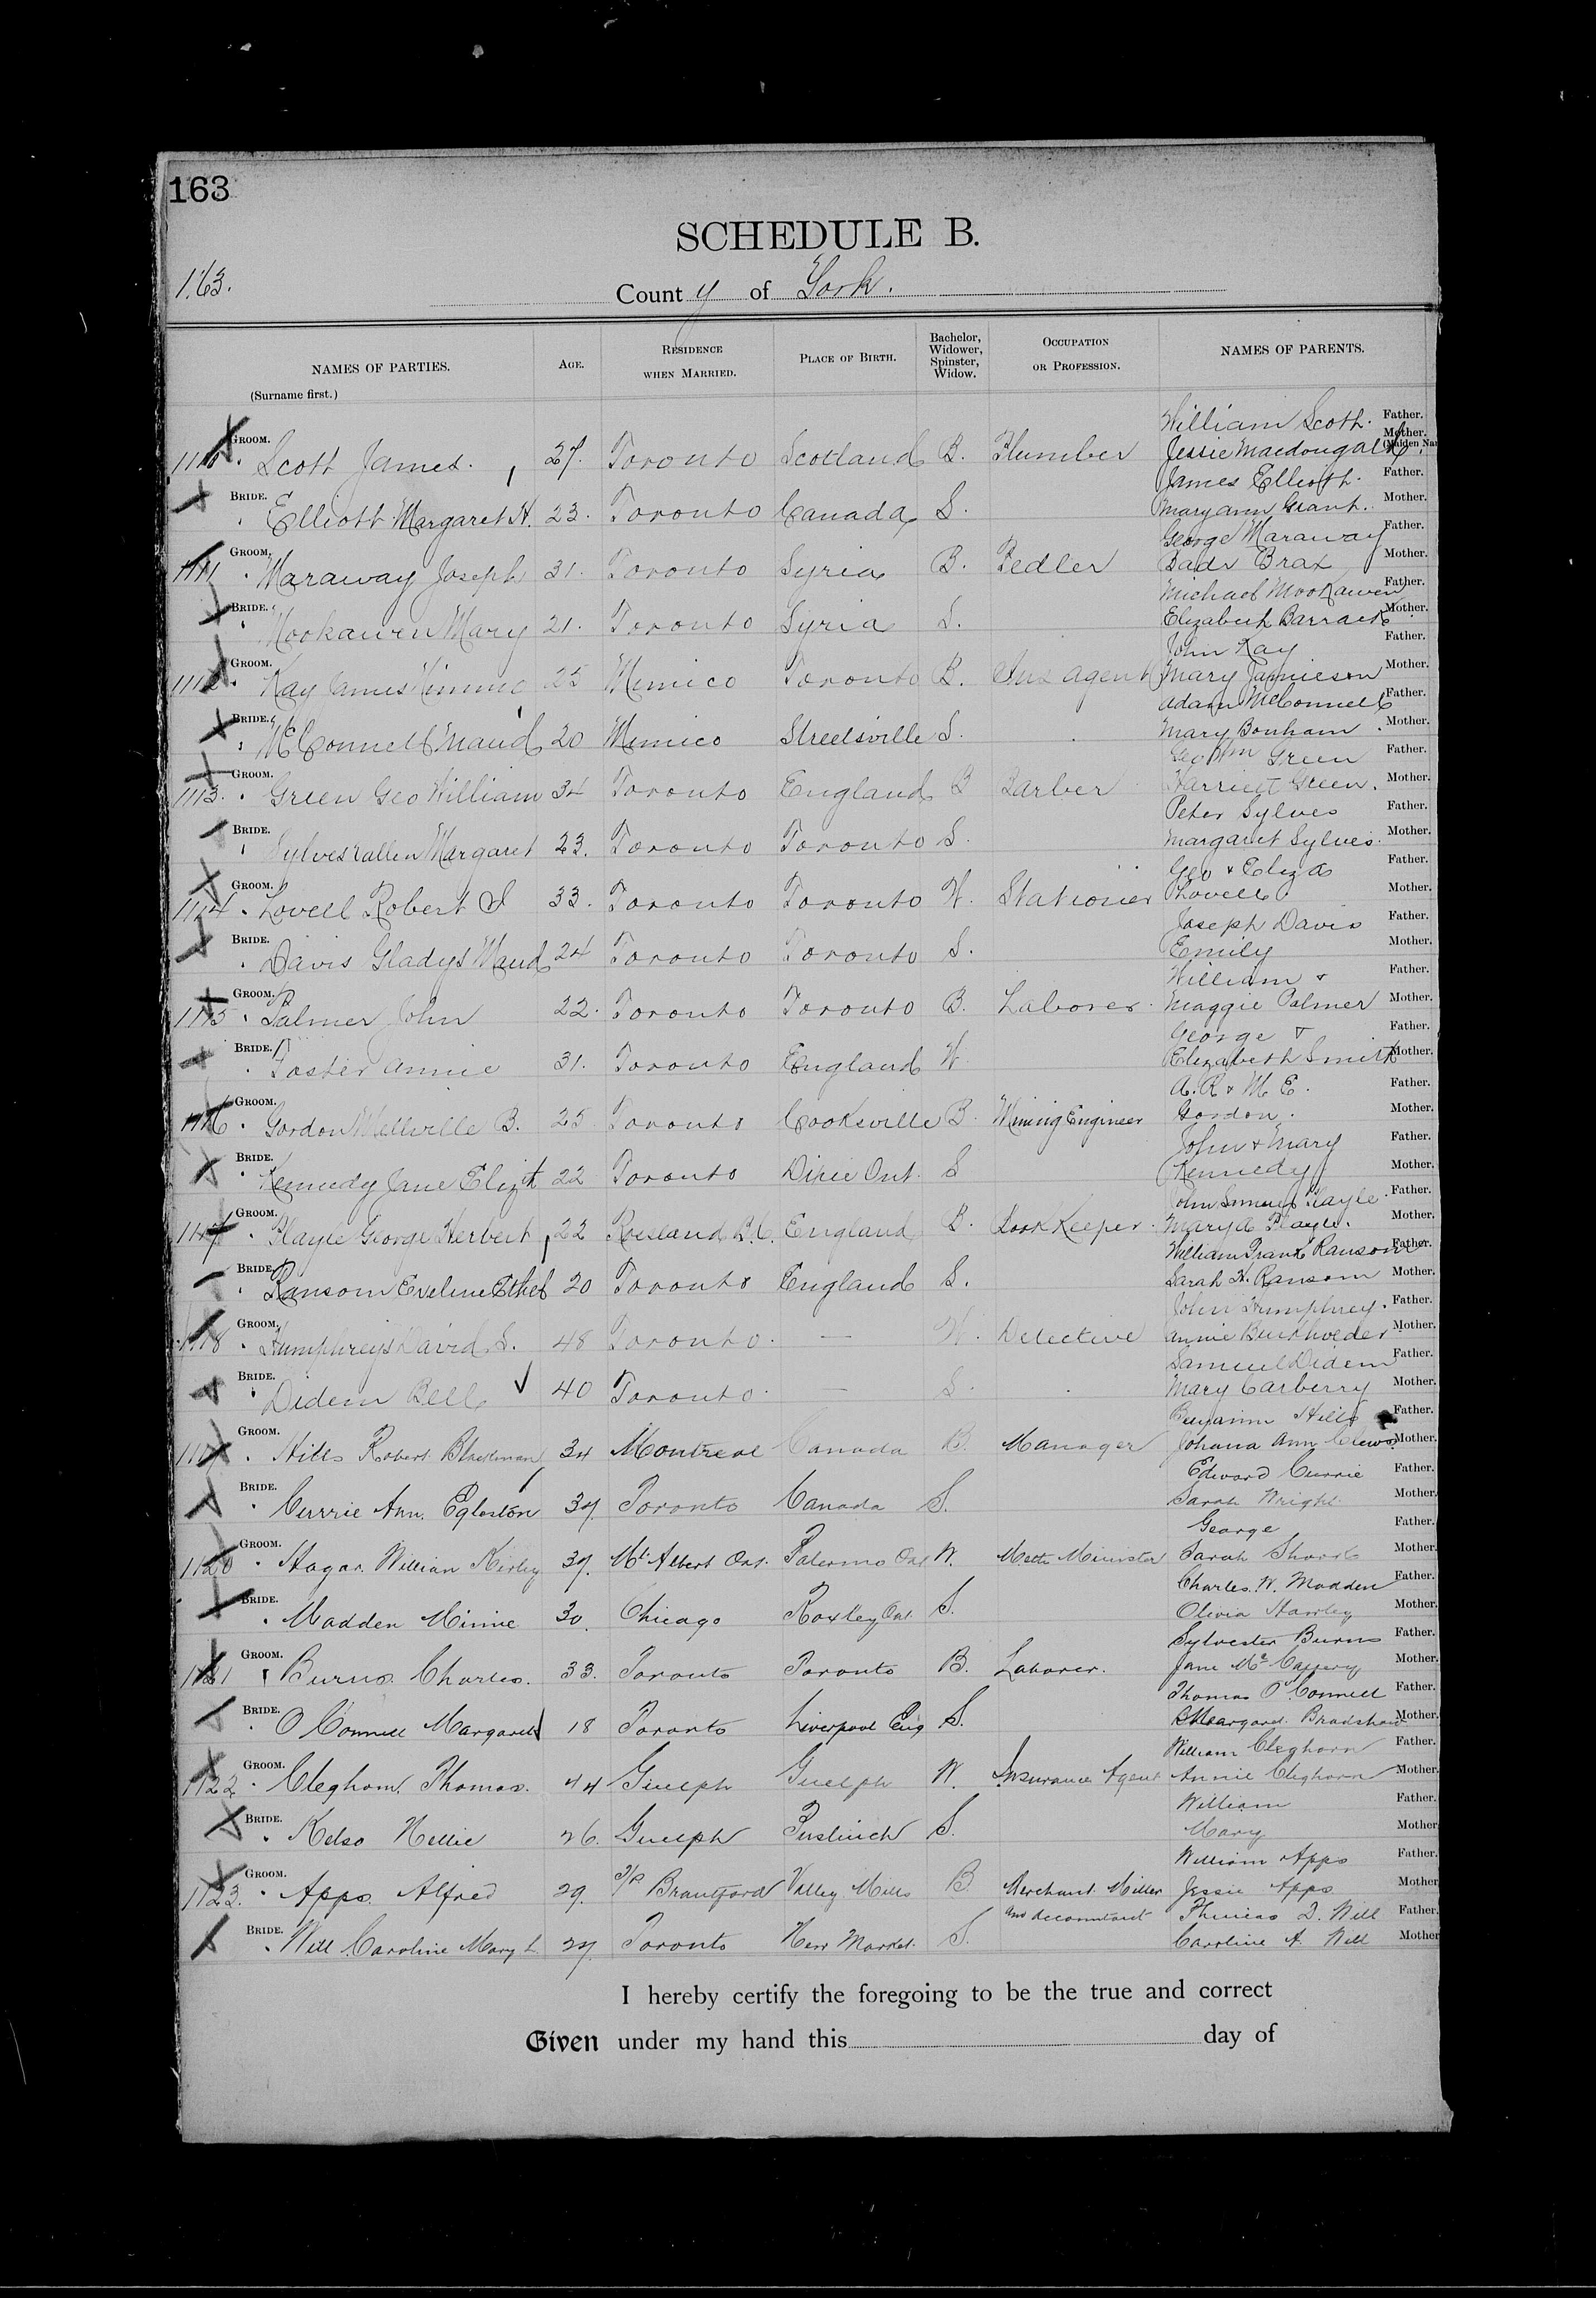 163
SCHEDULE B.
163.
County of York.
NAMES OF PARTIES. (Surname first.) AGE. RESIDENCE WHEN MARRIED. PLACE OF BIRTH. Bachelor, Widower, Spinster, Widow. OCCUPATION OR PROFESSION. NAMES OF PARENTS.
William Scott. Father.
GROOM. Mother. (Maiden Na
1110 Scott James. 27. Toronto Scotland B. Plumber Jessie Macdougald.
James Elliott. Father.
BRIDE. Elliott Margaret H. 23. Toronto Canada S. Mary ann Grant. Mother.
George Maraway Father.
1111 GROOM. Maraway Joseph 31. Toronto Syria B. Pedler Mother.
Michael Mookawen Father.
BRIDE. Mookawen Mary 21. Toronto Syria S. Elizabeth Mother.
John Kay Father.
1112 GROOM. Kay James 25 Mimico Toronto B. Ins agent Mary Jamieson Mother.
Adam McConnell Father.
BRIDE. McConnell Maud 20 Mimico Streetsville S. Mary Bonham Mother.
Geo Wm Green Father.
1113. GROOM. Green Geo William 34 Toronto England B Barber Harriett Green. Mother.
Peter Sylves Father.
BRIDE. Margaret 23. Toronto Toronto S. Margaret Sylves. Mother.
Geo & Eliza Father.
1114 GROOM. Lovell Robert S 33. Toronto Toronto W. Stationer Lovell Mother.
Joseph Davis Father.
BRIDE. Davis Gladys Maud 24 Toronto Toronto S. Emily Mother.
William & Father.
1115 GROOM. Palmer John 22. Toronto Toronto B. Laborer. Maggie Palmer Mother.
George & Father.
BRIDE. Foster Annie 31. Toronto England W Elizabeth Smith Mother.
A. R & M E. Father.
1116 GROOM. Gordon Mellville B. 25 Toronto Cooksville B Mining Engineer Gordon. Mother.
John & Mary Father.
BRIDE. Kennedy Jane Elizth 22 Toronto Dixie Ont. S Kennedy Mother.
John Father.
1117 GROOM. George Herbert 22 Rossland B.C. England B. Book Keeper. Mary Mother.
William Frank Ransom Father.
BRIDE. Ransom Eveline Ethel 20 Toronto England S. Sarah H. Ransom Mother.
John Humphrey. Father.
1118 GROOM. Humphreys David S. 48 Toronto. — W. Detective Annie Burkholder Mother.
Samuel Didem Father.
BRIDE. Didem Bell 40 Toronto. — S. Mary Carberry Mother.
Benjamin Hills Father.
1119 GROOM. Hills Robert Blackman 34 Montreal Canada B. Manager Johana Ann Clews. Mother.
Edward Currie Father.
BRIDE. Currie Ann. Egleston 37 Toronto Canada S. Sarah Wright. Mother.
George Father.
1120 GROOM. Hagar. William Kirley 37. Mt Albert Ont. Palermo Ont W. Meth Minister Sarah Mother.
Charles. W. Madden Father.
BRIDE. Madden Minnie 30. Chicago Roxley Ont. S. Olivia Hawley Mother.
Sylvester Burns Father.
1121 GROOM. Burns. Charles. 33. Toronto Toronto B. Laborer. Jane McCaffery Mother.
Thomas O'Connell Father.
BRIDE. O Connell Margaret 18 Toronto Liverpool Eng S. Margaret Bradshaw Mother.
William Cleghorn Father.
1122 GROOM. Cleghorn. Thomas. 44 Guelph Guelph W. Insurance Agent Annie Cleghorn Mother.
William Father.
BRIDE. Kelso Nellie 26. Guelph Puslinch S. Mary Mother
William Apps Father.
1123. GROOM. Apps. Alfred 29. T/P Brantford Valley Mills B Merchant Miller Jessie Apps Mother
and accountant Phineas D. Will Father.
BRIDE. Will Caroline Mary L 27. Toronto New Market. S. Caroline A. Will Mother
I hereby certify the foregoing to be the true and correct
Given under my hand this day of